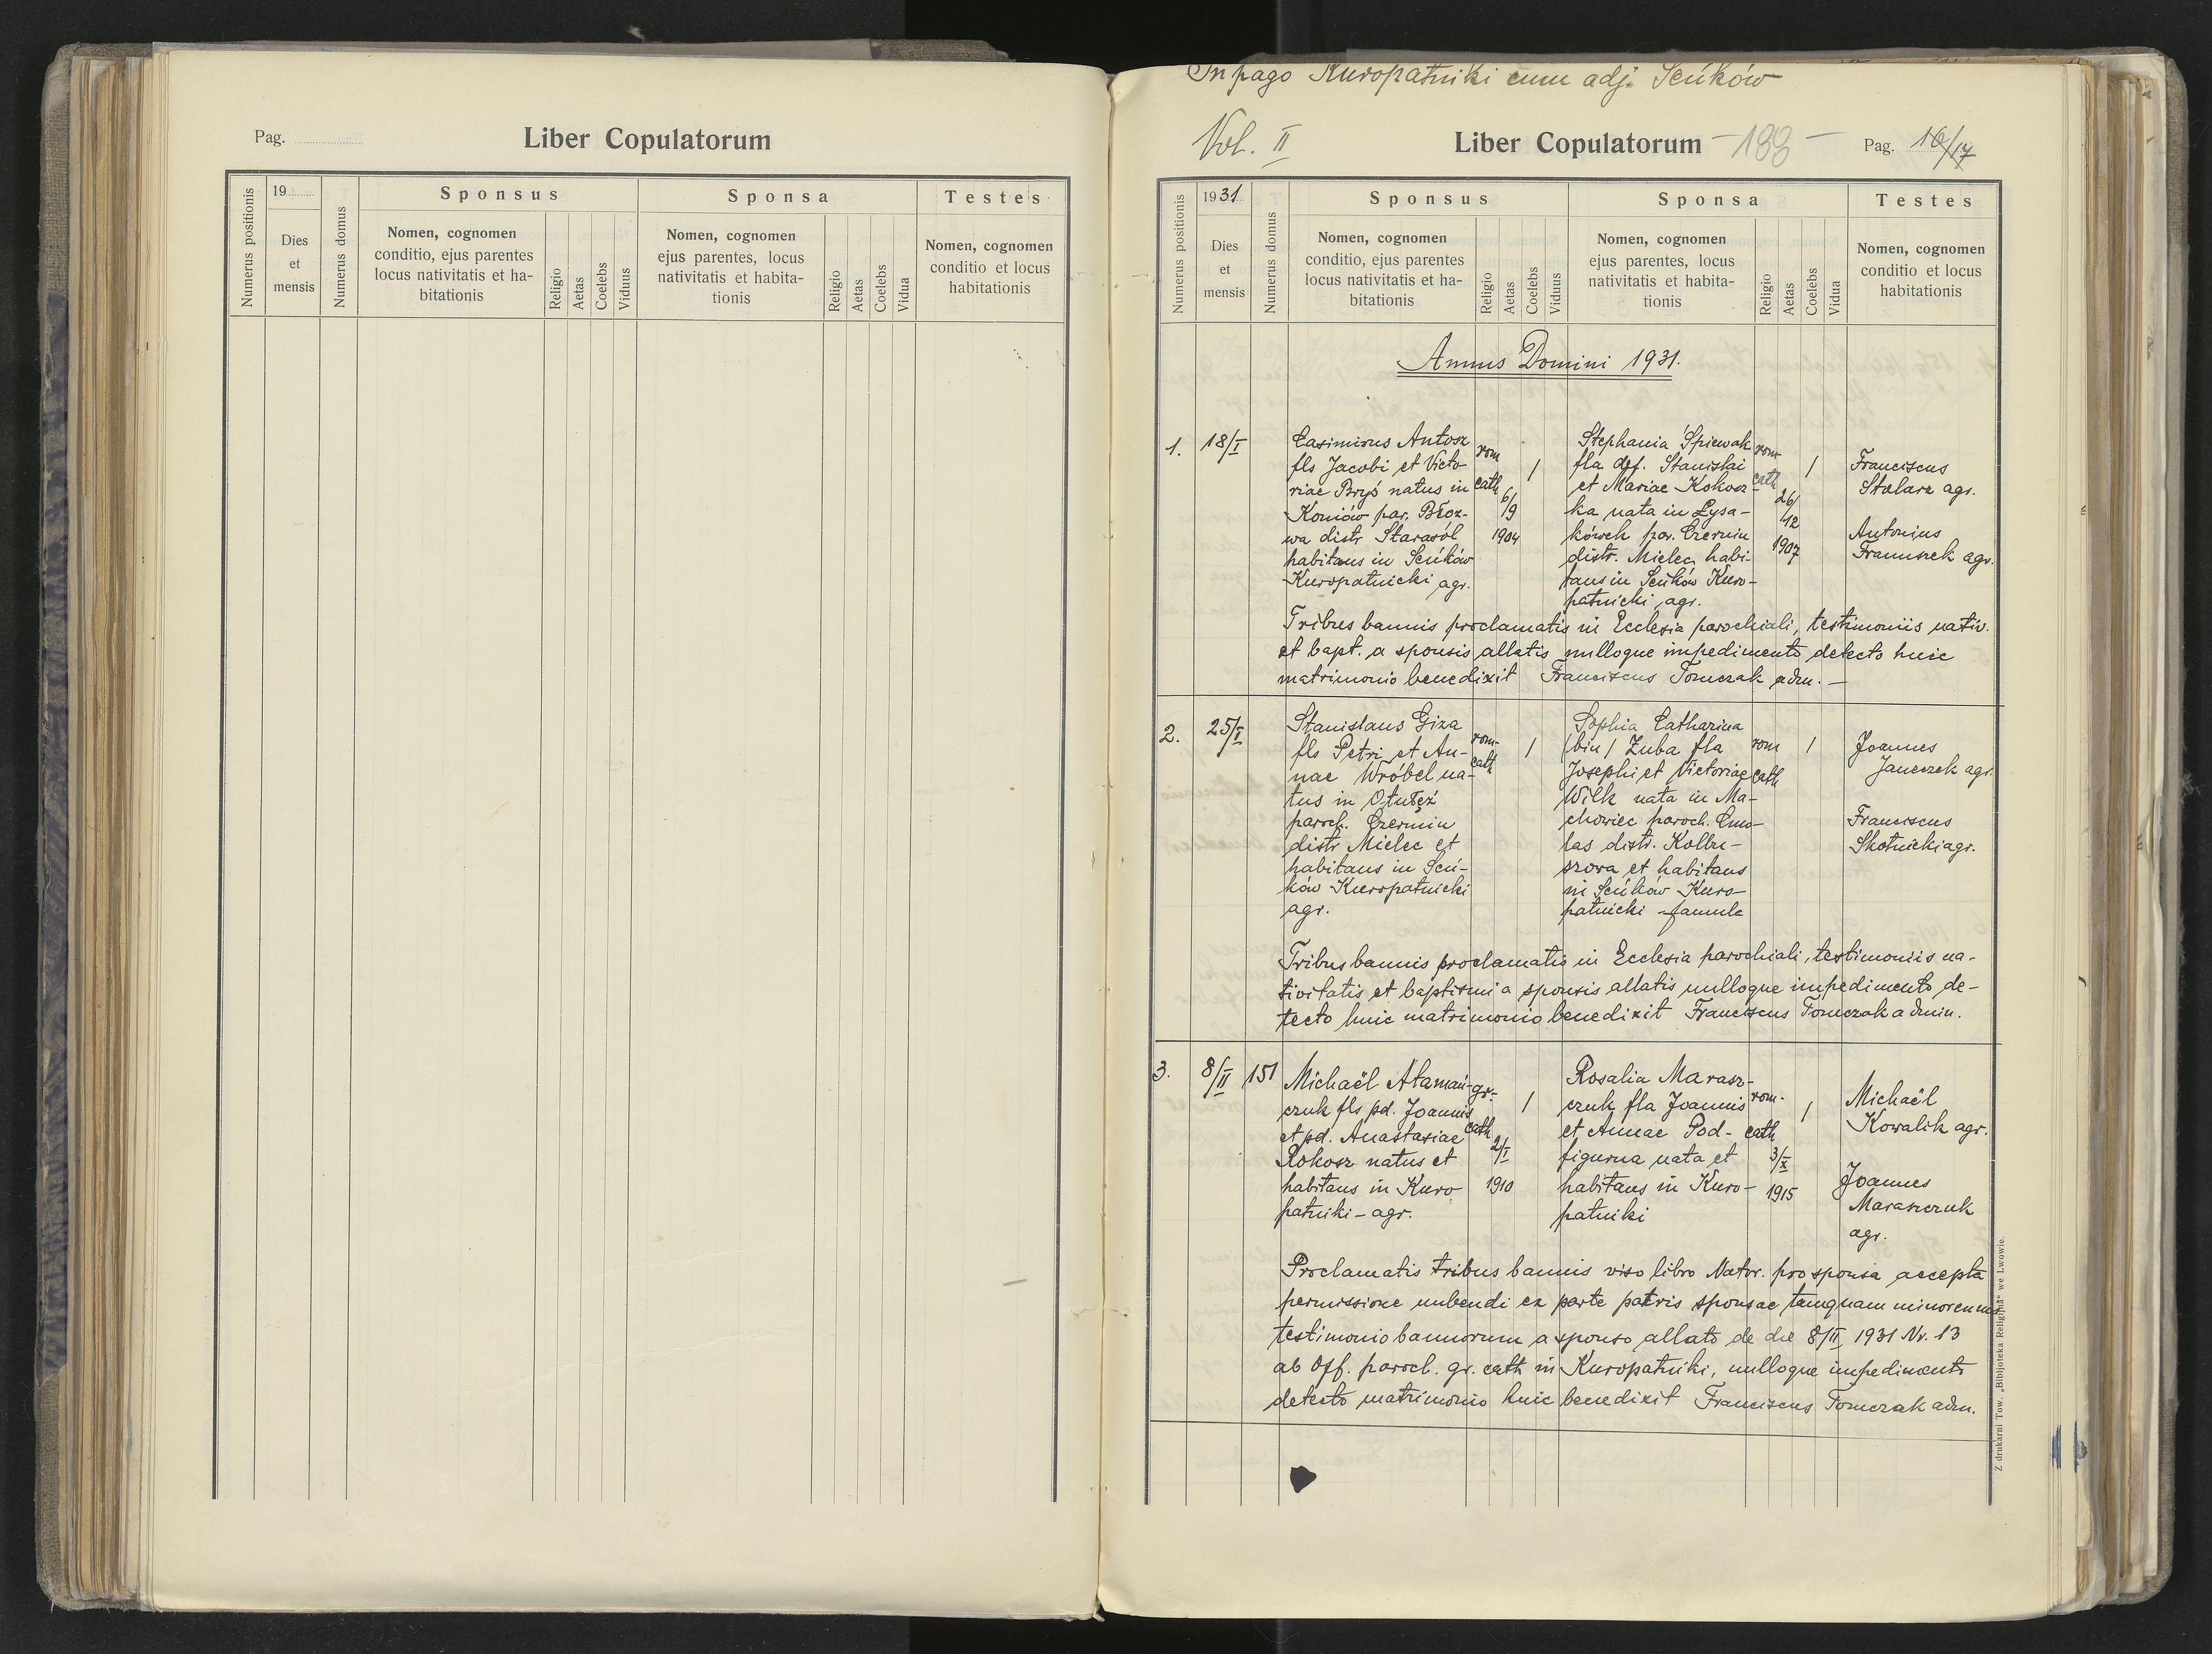 Pag.
Liber Copulatorum
Numerus positionis
19
Dies
et
mensis
Numerus domus
Sponsus
Nomen, cognomen
conditio, ejus parentes
locus nativitatis et ha-
bitationis
Religio
Aetas
Coelebs
Viduus
Sponsa
Nomen, cognomen
ejus parentes, locus
nativitatis et habita-
tionis
Religio
Aetas
Coelebs
Vidua
Testes
Nomen, cognomen
conditio et locus
habitationis
In pago Kuropatniki cum adj. Seńków
Vol. II
Liber Copulatorum
Pag. 16/17
Numerus positionis
1931
Dies
et
mensis
Numerus domus
Sponsus
Nomen, cognomen
conditio, ejus parentes
locus nativitatis et ha-
bitationis
Religio
Aetas
Coelebs
Viduus
Sponsa
Nomen, cognomen
ejus parentes, locus
nativitatis et habita-
tionis
Religio
Aetas
Coelebs
Vidua
Testes
Nomen, cognomen
conditio et locus
habitationis
Annus Domini 1931.
1.
18/I
Casimirus Antosz
fls Jacobi et Victo-
riae Bryś natus in
Koniów par. Błoz-
wa distr Starasól
habitans in Seńków
Kuropatnicki agr.
rom
cath
6/
9
1904
/
Stephania Śpiewak
fla def. Stanislai
et Mariae Kokosz-
ka nata in Łysa-
kówek par. Czermin
distr. Mielec, habi-
tans in Seńków Kuro-
patnicki agr.
rom
cath
26/
12
1907
/
Franciscus
Stolarz agr.
Antonius
Franuszek agr.
Tribus bannis proclamatis in Ecclesia parochiali, testimoniis nativ.
et bapt. a sponsis allatis nulloque impedimento detecto huic
matrimonio benedixit Franciscus Tomczak adm. —
2.
25/I
Stanislaus Giza
fls Petri et An-
nae Wróbel na-
tus in Otałęż
paroch. Czermin
distr Mielec et
habitans in Seń-
ków Kuropatnicki
agr.
rom-
cath
/
Sophia Catharina
(bin) Zuba fla
Josephi et Victoriae
Wilk nata in Ma-
chowiec paroch. Cmo-
las distr. Kolbu-
szowa et habitans
in Seńków Kuro-
patnicki - famula
rom
cath
/
Joannes
Janeczek agr.
Franciscus
Skotnicki agr.
Tribus bannis proclamatis in Ecclesia parochiali, testimoniis na-
tivitatis et baptismi a sponsis allatis nulloque impedimento de-
tecto huic matrimonio benedixit Franciscus Tomczak admin.
3.
8/II
151
Michaël Atamań-
czuk fls pd. Joannis
et pd. Anastasiae
Rokosz natus et
habitans in Kuro
patniki - agr.
gr.
cath
2/I
1910
/
Rosalia Marasz-
czuk fla Joannis
et Annae Pod-
figurna nata et
habitans in Kuro-
patniki
rom.
cath
3/X
1915
/
Michaël
Kowalik agr.
Joannes
Maraszczuk
agr.
Proclamatis tribus bannis viso libro Nator. pro sponsa accepta
permissione nubendi ex parte patris sponsae tamquam minorennis
testimonio bannorum a sponso allato de die 8/II 1931 Nr. 13
ab Off. paroch. gr. cath in Kuropatniki, nulloque impedimento
detecto matrimonio huic benedixit Franciscus Tomczak adm.
Z drukarni Tow. „Bibljoteka Religijna" we Lwowie.